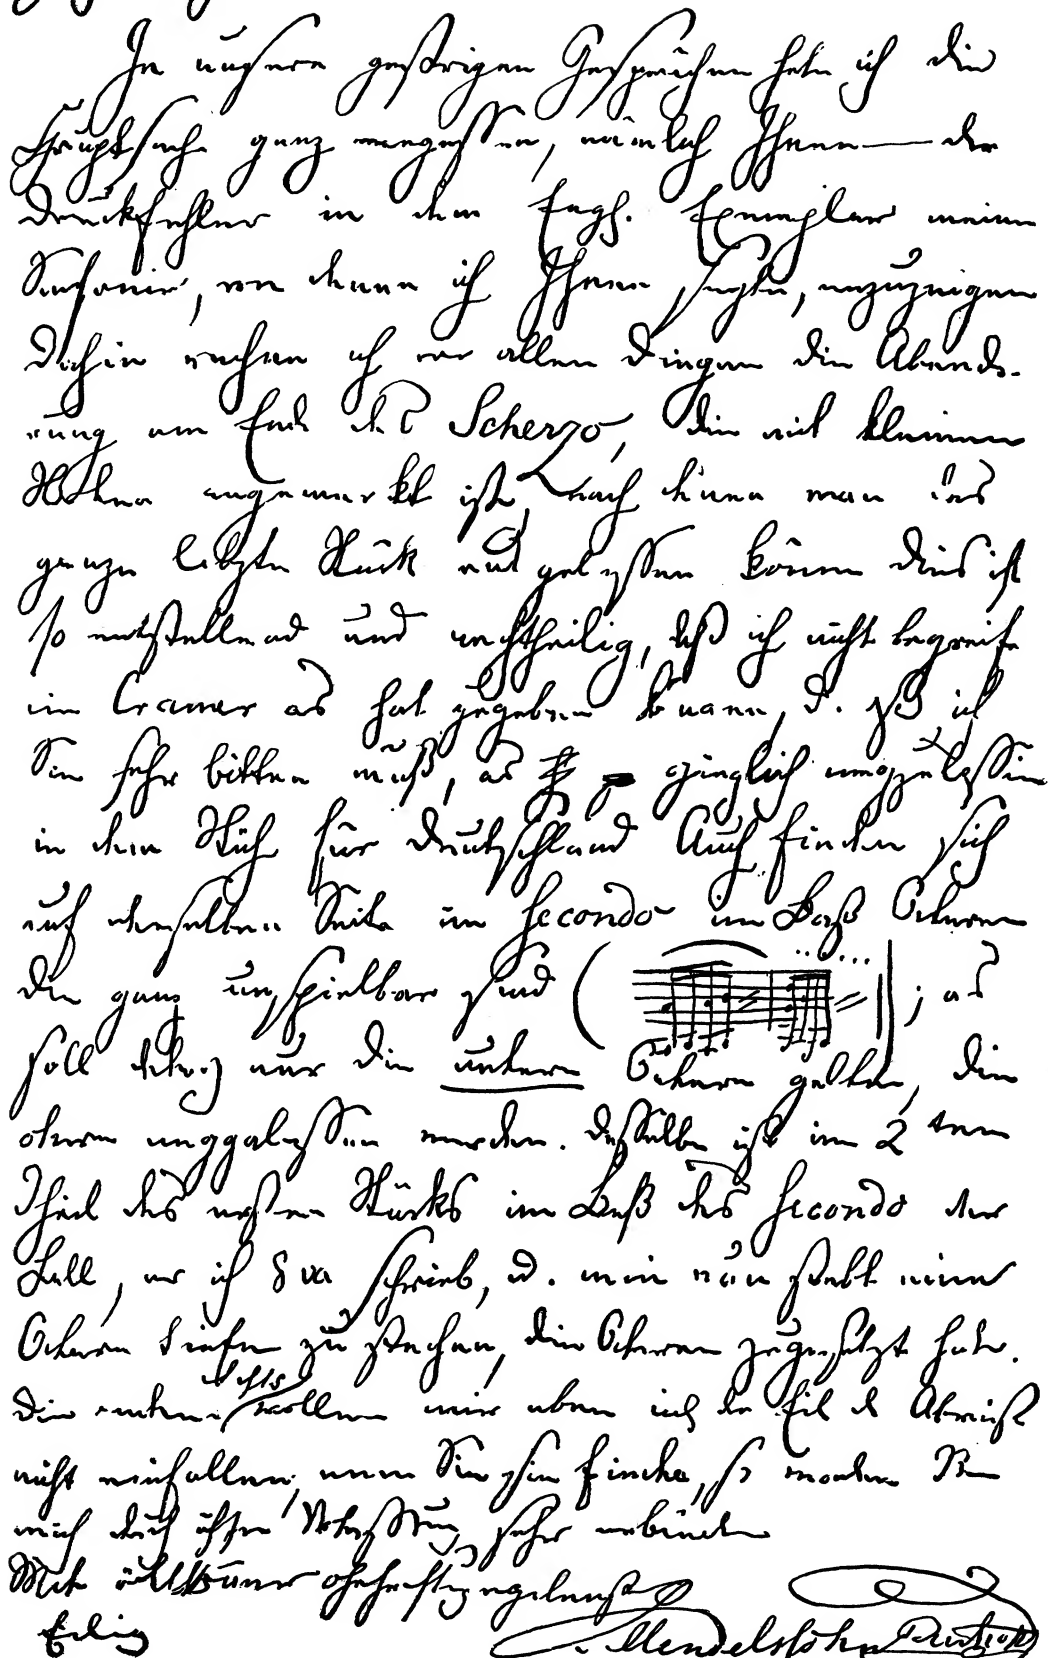 In unsern gestrigen Gesprächen habe ich die
Hauptsache ganz vergessen, nämlich Ihnen — die
Druckfehler in dem Engl. Exemplar meiner
Sinfonie, von denen ich Ihnen sagte, anzuzeigen
Dahin rechne ich vor allen Dingen die Abände-
rung am Ende des Scherzo, die mit kleinen
Noten angemerkt ist, nach denen man das
ganze letzte Stück auslassen könne Dies ist
so entstellend und nachtheilig, daß ich nicht begreife
wie Cramer es hat zugeben können, u. daß ich
Sie sehr bitten muß, es gänzlich wegzulassen
in dem Stich für Deutschland Auch finden sich
auf derselben Seite im Secondo im Baß Octaven
die ganz unspielbar sind ( ) ; es
soll nur die untern Octaven gelten, die
obern weggelassen werden. Dasselbe ist im 2 ten
Theil des ersten Stücks im Baß des Secondo der
Fall, wo ich 8 va schrieb, u. man nun statt eine
Octave tiefer zu stechen, die Octaven zugesetzt hat.
Die andern wollen mir eben in der Eil der Abreise
nicht einfallen, wenn Sie sie finden, so werden Sie
mich durch sehr verbinden
Mit
Eilig
Mendelssohn Bartholdy